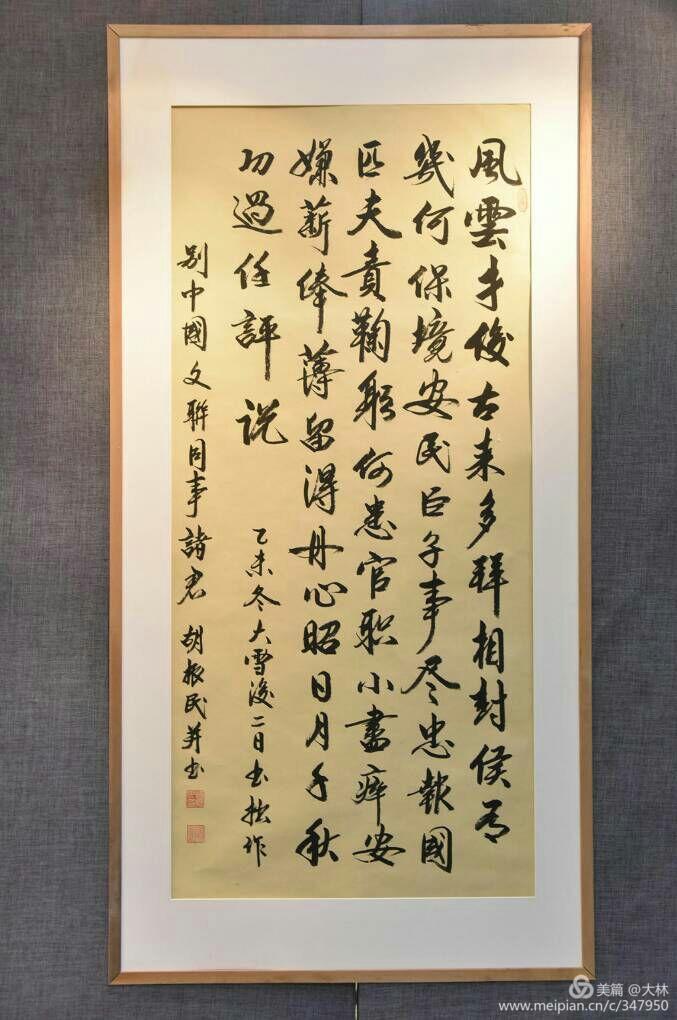 風雲才俊古来多拜相封侯有
幾何保境安民臣子事尽忠報國
匹夫責鞠躬何患官职小盡瘁安
嫌薪俸薄留得丹心昭日月千秋
功過任評说
乙未冬大雪後二日书拙作
别中國文聯同事諸君 胡振民并书
美篇 @大林
www.meipian.cn/c/347950